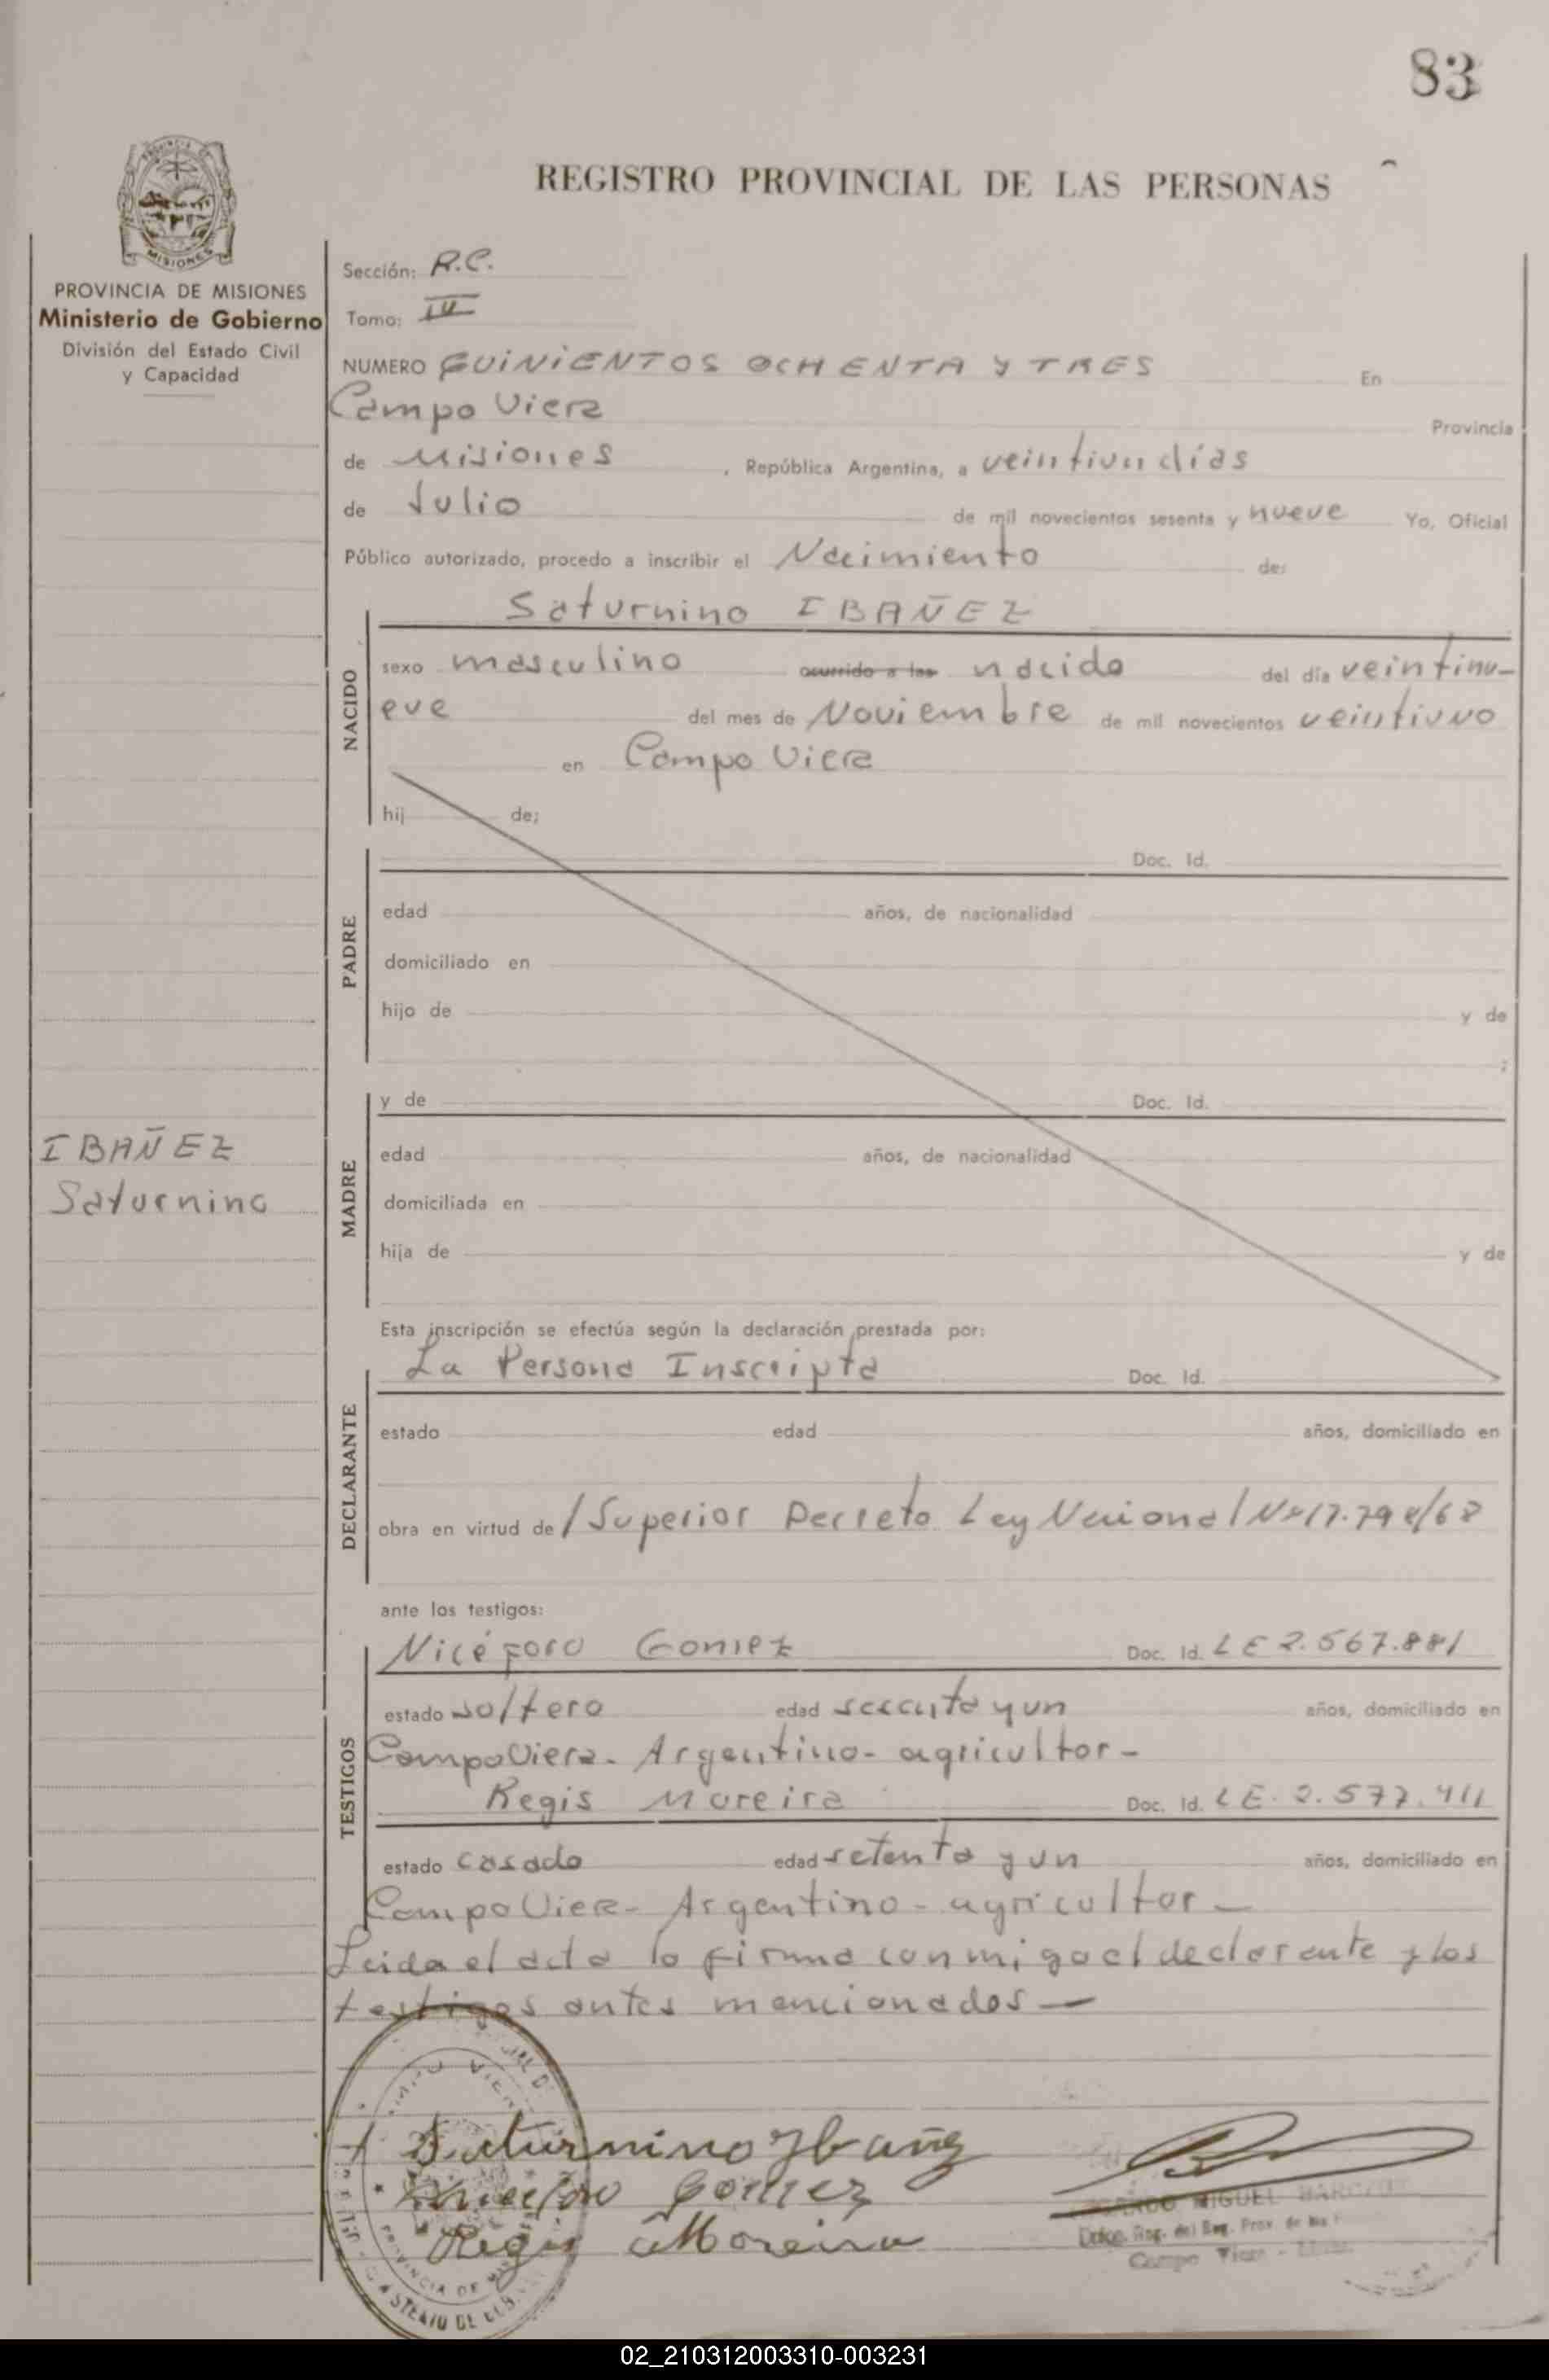 83
REGISTRO PROVINCIAL DE LAS PERSONAS
MISIONES
PROVINCIA DE MISIONES
Ministerio de Gobierno
División del Estado Civil
y Capacidad
Sección: R.C.
Tomo: III
NUMERO QUINIENTOS OCHENTA Y TRES En
Campo Viera Provincia
de Misiones , República Argentina, a veintiun días
de Julio de mil novecientos sesenta y nueve Yo, Oficial
Público autorizado, procedo a inscribir el Nacimiento de:
Saturnino IBAÑEZ
NACIDO
sexo masculino ocurrido a las nacido del día veintinu-
eve del mes de Noviembre de mil novecientos veintiuno
en Campo Viera
hij de;
PADRE
Doc. Id.
edad años, de nacionalidad
domiciliado en
hijo de y de
;
MADRE
y de Doc. Id.
edad años, de nacionalidad
domiciliada en
hija de y de
IBAÑEZ
Saturnino
Esta inscripción se efectúa según la declaración prestada por:
La Persona Inscripta Doc. Id.
DECLARANTE
estado edad años, domiciliado en
obra en virtud de/Superior Decreto Ley Nacional Nº 17.79 /68
ante los testigos:
TESTIGOS
Nicéforo Gomez Doc. Id. LE 2.567.881
estado soltero edad sesenta y un años, domiciliado en
Campo Viera- Argentino- agricultor-
Regis Moreira Doc. Id. LE. 2.577.411
estado casado edad setenta y un años, domiciliado en
Campo Viera- Argentino- agricultor-
Leida el acta la firma conmigo el declarante y los
testigos antes mencionados—
Saturnino Ybañez
Niceforo Gomez
Regis Moreira
MIGUEL
Reg. del Reg. Prov. de las
Campo Viera
PROVINCIA DE
MINISTERIO DE GOB.
02_210312003310-003231